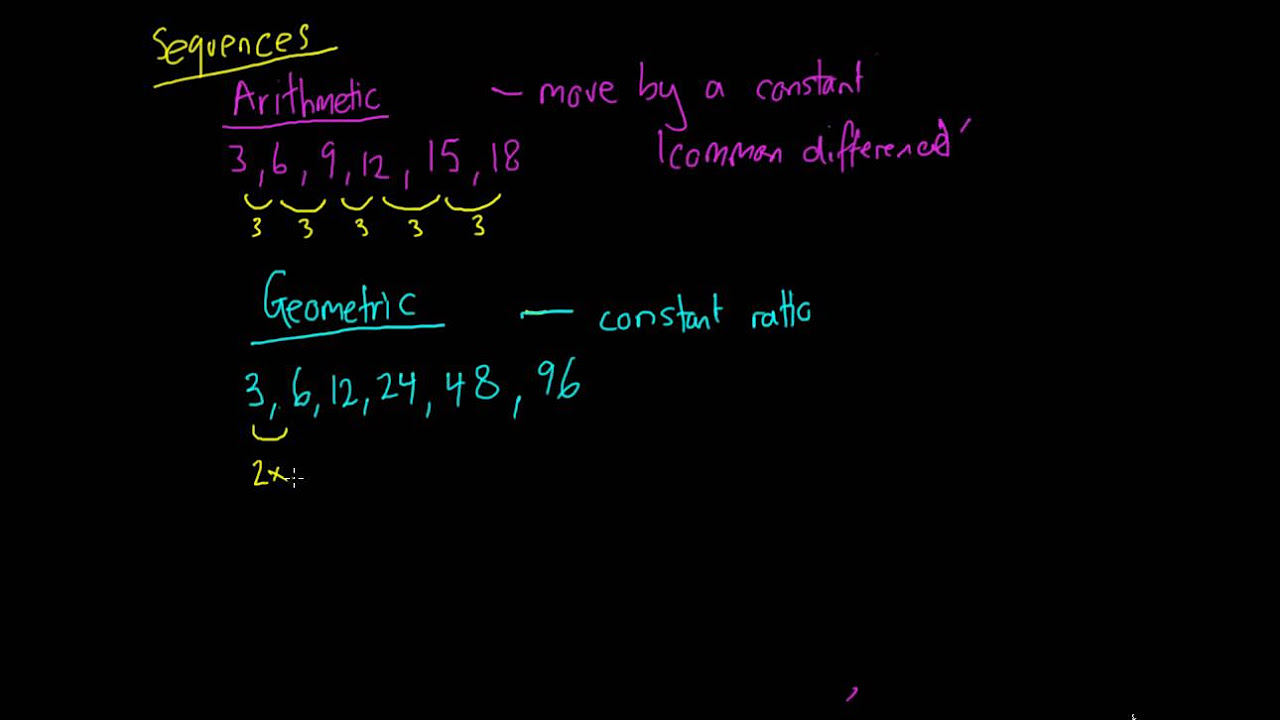 Sequences
Arithmetic – move by a constant
'common difference'
3, 6, 9, 12, 15, 18
3 3 3 3 3
Geometric — constant ratio
3, 6, 12, 24, 48, 96
2x